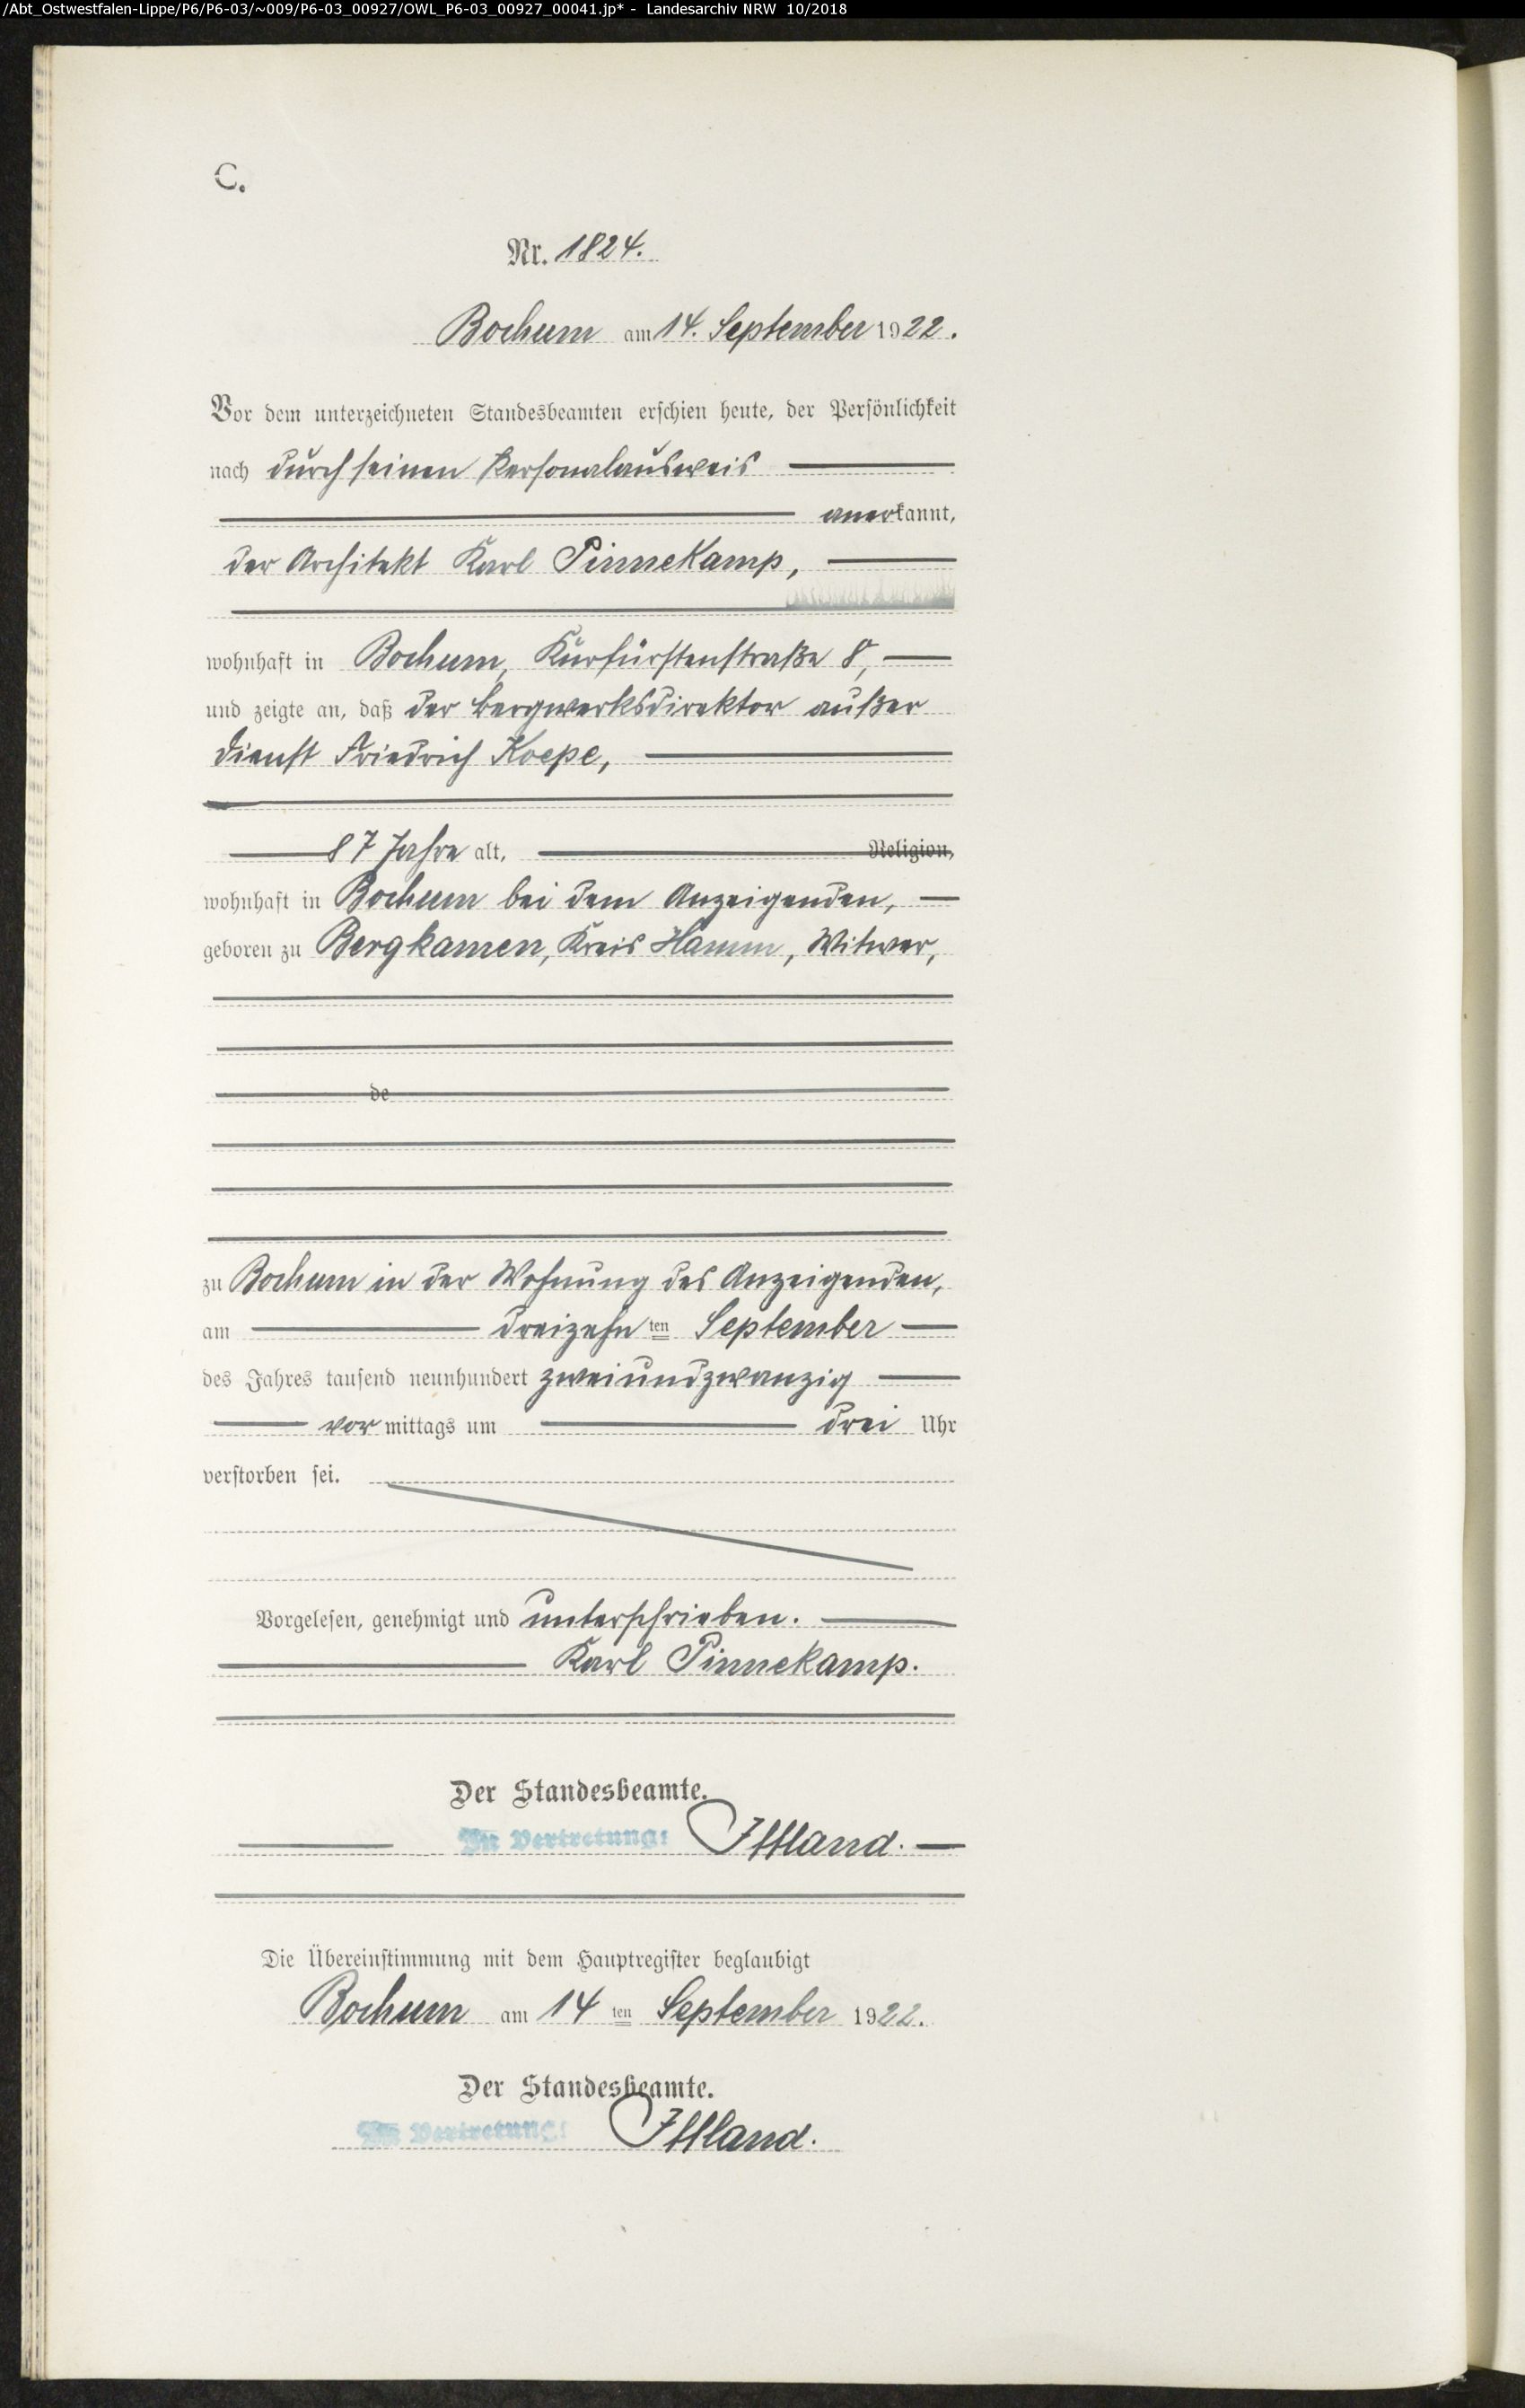 /Abt_Ostwestfalen-Lippe/P6/P6-03/~009/P6-03_00927/OWL_P6-03_00927_00041.jp* - Landesarchiv NRW 10/2018
C.
Nr. 1824.
Bochum am 14. September 1922.
Vor dem unterzeichneten Standesbeamten erschien heute, der Persönlichkeit
nach durch seinen Personalausweis
anerkannt,
der Architekt Karl Pinnekamp,
wohnhaft in Bochum, Kurfürstenstraße 8,
und zeigte an, daß der Bergwerksdirektor außer
Dienst Friedrich Koepe,
87 Jahre alt, Religion,
wohnhaft in Bochum bei dem Anzeigenden,
geboren zu Bergkamen, Kreis Hamm, Witwer,
de
zu Bochum in der Wohnung des Anzeigenden,
am dreizehnten September
des Jahres tausend neunhundert zweiundzwanzig
vormittags um drei Uhr
verstorben sei.
Vorgelesen, genehmigt und unterschrieben.
Karl Pinnekamp.
Der Standesbeamte.
In Vertretung: Iffland.
Die Übereinstimmung mit dem Hauptregister beglaubigt
Bochum am 14ten September 1922.
Der Standesbeamte.
In Vertretung: Iffland.